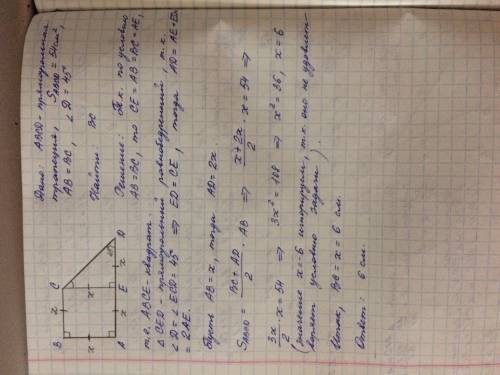 Дано: ABCD - прямоугольная
трапеция, SABCD = 54 см²,
AB = BC, ∠D = 45°
Найти: BC
B
x
C
x
x
45°
A
x
E
x
D
Решение: Т.к. по условию
AB = BC, то CE = AB = BC = AE,
т.е. ABCE - квадрат.
△CED - прямоугольный равнобедренный, т.к.
∠D = ∠ECD = 45° ⇒ ED = CE, тогда AD = AE + ED =
= 2AE.
Пусть AB = x, тогда AD = 2x.
SABCD = BC + AD / 2 · AB ⇒ x + 2x / 2 · x = 54 ⇒
3x / 2 · x = 54 ⇒ 3x² = 108 ⇒ x² = 36, x = 6
(значение x = -6 игнорируем, т.к. оно не удовлет-
воряет условию задачи).
Итак, BC = x = 6 см.
Ответ: 6 см.